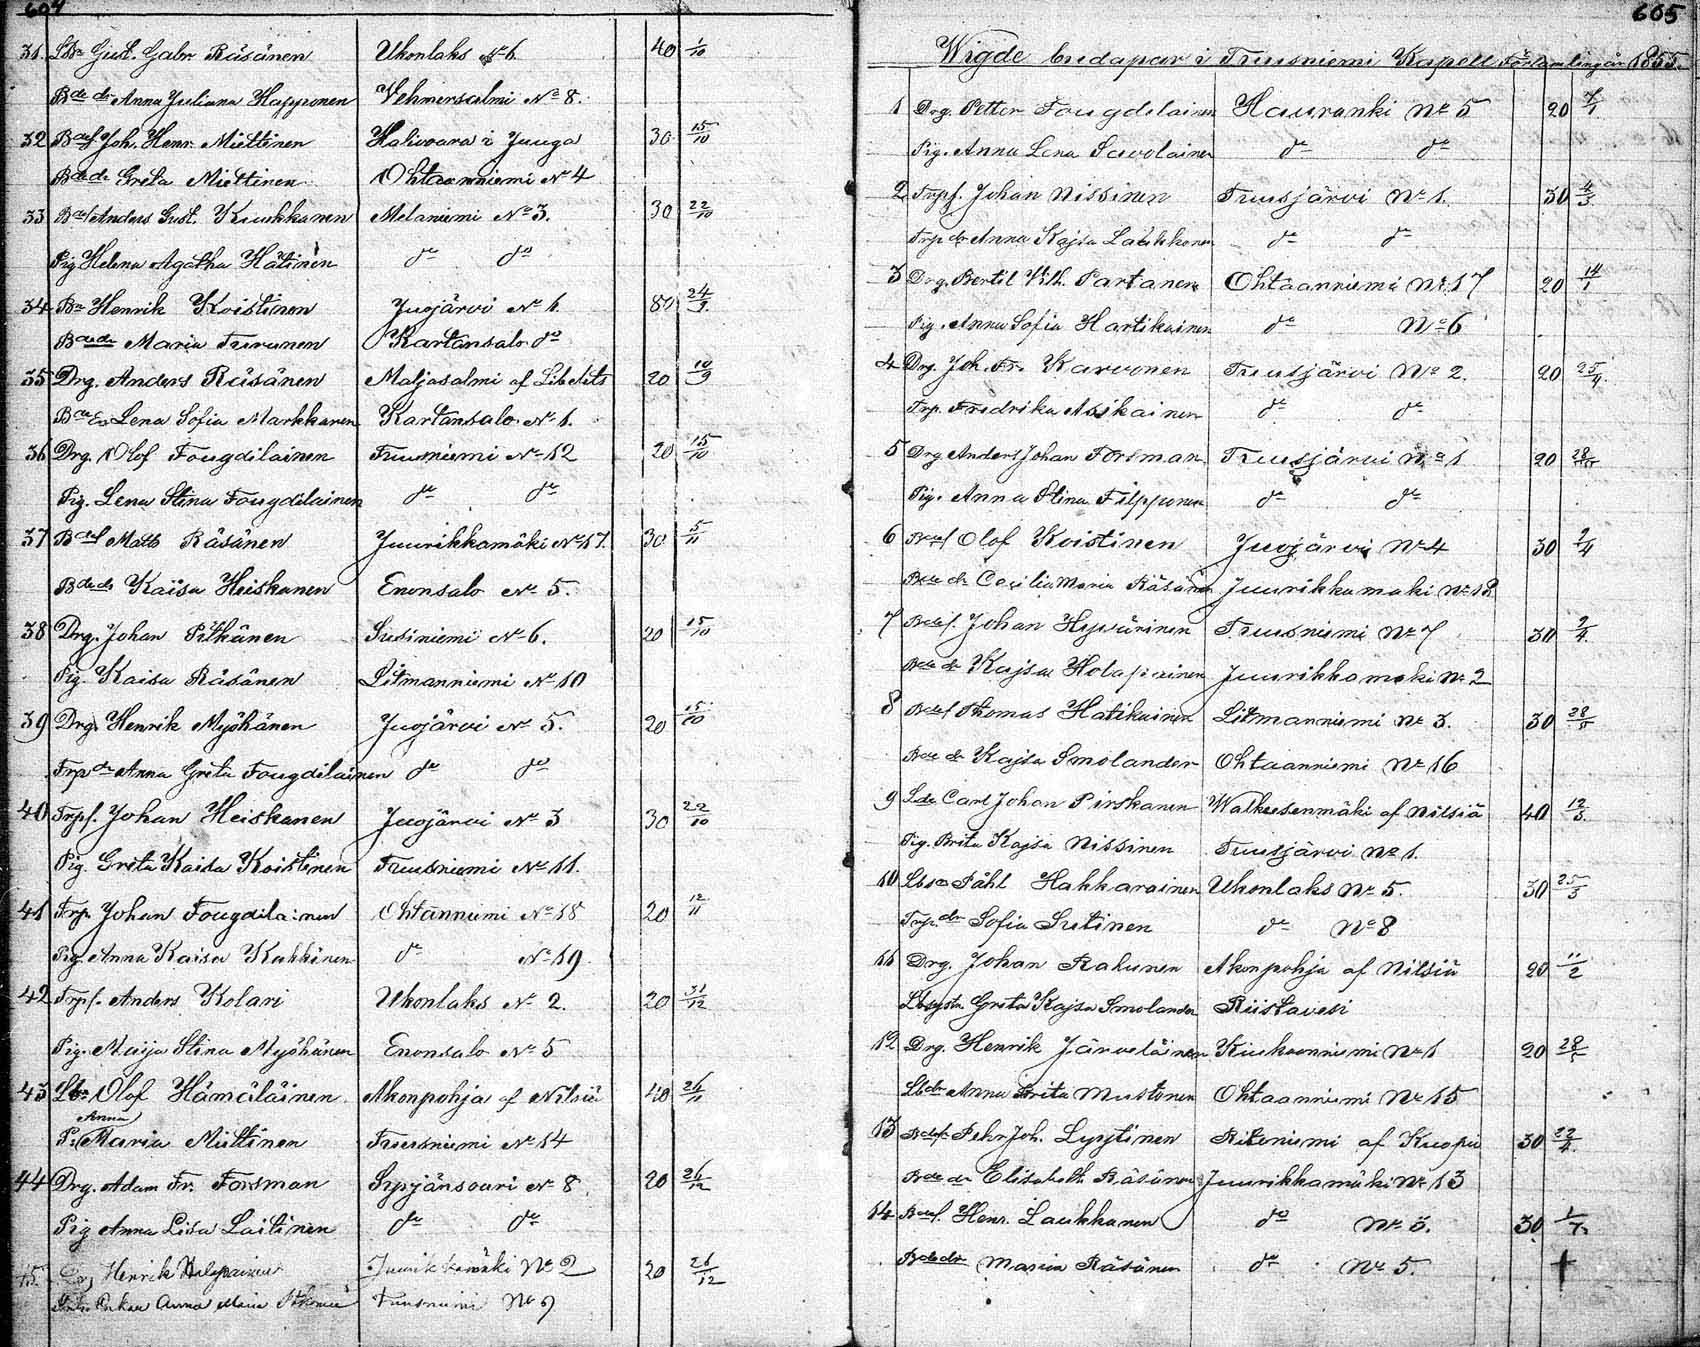 604
31 Lbr Gust. Gabr. Räsänen Ukonlaks No 6. 40 1/10
Bde dr Anna Juliana Happonen Vehmersalmi No 8.
32 Bdes Joh. Henr. Miettinen Halivaara i Juuga 30 15/10
Bde dr Greta Miettinen Ohtaanniemi No 4
33 Bdes Anders Gust. Kuukkanen Melaniemi No 3. 30 22/10
Pig Helena Agatha Hätinen do do
34 Bn Henrik Koistinen Juojärvi No 1. 80 24/9.
Bde dr Maria Turunen Kartansalo do
35 Drg. Anders Räsänen Maljasalmi af Libelits 20 10/9
Bde Lena Sofia Markkanen Kartansalo No 1.
36 Drg. Olof Fougdilainen Tuusniemi No 12 20 15/10
Pig. Lena Stina Fougdilainen do do
37 Bdes Matts Räsänen Juurikkamäki No 17. 30 5/11
Bde dr Kaisa Heiskanen Enonsalo No 5.
38 Drg. Johan Pitkänen Susiniemi No 6. 20 15/10
Pig. Kaisa Räsänen Litmanniemi No 10
39 Drg. Henrik Myöhänen Juojärvi No 5. 20 15/10
Trp dr Anna Greta Fougdilainen do do
40 Trpf. Johan Heiskanen Juojärvi No 3 30 22/10
Pig. Greta Kaisa Koistinen Tuusniemi No 11.
41 Trp. Johan Fougdilainen Ohtanniemi No 18 20 12/11
Pig. Anna Kaisa Kahkinen do No 19.
42 Trpf. Anders Kolari Ukonlaks No 2. 20 31/12
Pig. Maija Stina Myöhänen Enonsalo No 5
43 Lbr Olof Hämäläinen Akonpohja af Nilsiä 40 26/11
Anna
P. Maria Miettinen Tuusniemi No 14
44 Drg. Adam Fr. Forsman Syrjänsaari No 8. 20 26/12
Pig Anna Lisa Laitinen do do
45. Drg Henrik Holopainen Juurikkamäki No 2 20 26/12
Enkan Anna Maria Tuusniemi No 9
605
Wigde brudapar i Tuusniemi Kapell Församling år 1855.
1 Drg. Petter Fougdelainen Hauranki No 5 20 7/1.
Pig. Anna Lena Savolainen do do
2 Trpf. Johan Nissinen Tuusjärvi No 1. 30 4/3
Trp dr Anna Kajsa Laukkonen do do
3 Drg. Bertil Vilh. Partanen Ohtaanniemi No 17 20 14/1
Pig. Anna Sofia Hartikainen do No 6
4 Drg. Joh. Fr. Karvonen Tuusjärvi No 2. 20 25/4.
Trp. Fredrika Asikainen do do
5 Drg Anders Johan Forsman Tuusjärvi No 1 20 28/
Pig. Anna Stina Filpponen do do
6 Bdes Olof Koistinen Juojärvi No 4 30 9/4
Bde dr Cecilia Maria Räsänen Juurikkamäki No 12
7 Bdes. Johan Hyvärinen Tuusniemi No 7 30 9/4.
Bde dr Kajsa Holapainen Juurikkamäki No 2
8 Bdes Thomas Hatikainen Litmanniemi No 3. 30 28/5
Bde dr Kajsa Smolander Ohtaanniemi No 16
9 Lde Carl Johan Pirskanen Walkeesenmäki af Nilsiä 40 12/3.
Pig. Brita Kajsa Nissinen Tuusjärvi No 1.
10 Lbso Påhl Hakkarainen Ukonlaks No 5. 30 25/3
Trp dr Sofia Sutinen do No 8
11 Drg. Johan Rahunen Akonpohja af Nilsiä 20 11/2
Lbsysta Greta Kajsa Smolander Riistavesi
12 Drg. Henrik Järveläinen Kiukoonniemi No 1 20 28/
Lbdr Anna Brita Mustonen Ohtaanniemi No 15
13 Bdes. Pehr Joh. Lyytinen Ritoniemi af Kuopio 30 22/4.
Bde dr Elisabeth Räsänen Juurikkamäki No 13
14 Bdes. Henr. Laukkanen do No 5. 30 1/7.
Bde dr Maria Räsänen do No 5.